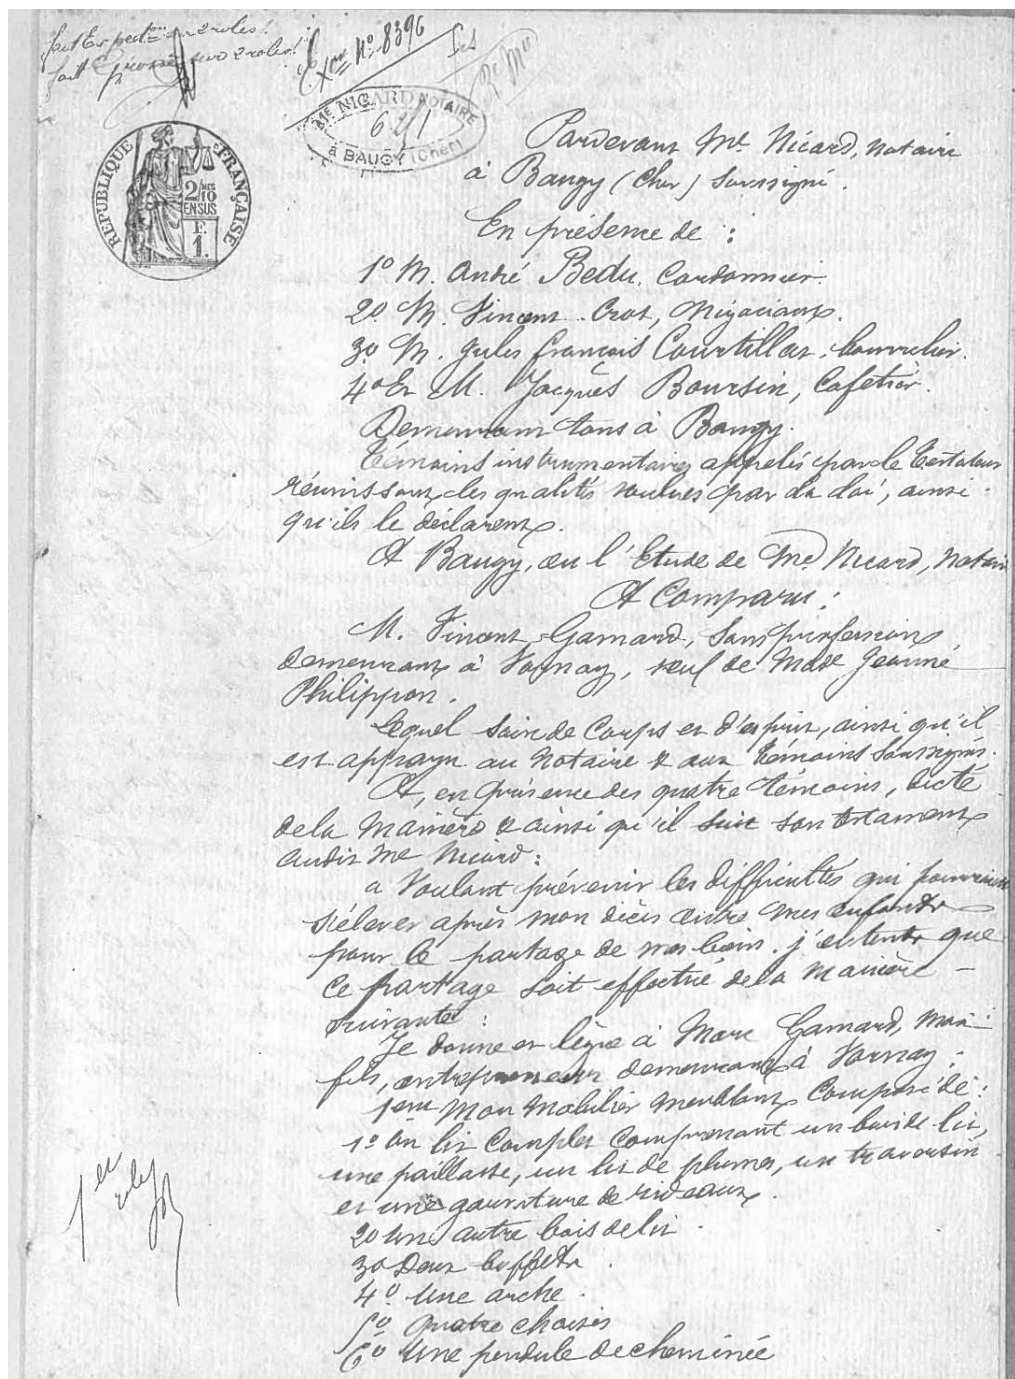 fait Expéd.on en 2 roles.
fait grosse sur 2 roles.
Xme No. 8396
Me NICARD NOTAIRE
à BAUGY (Cher)
REPUBLIQUE FRANÇAISE
2/10MES
EN SUS
F.
1.
Pardevant Me Nicard, notaire
à Baugy (Cher) soussigné.
En présence de :
1o M. André Bedu, Cordonnier.
2o M. Vincent Crot, Négociant.
3o M. Jules François Courtillat, bourrelier.
4o Et M. Jacques Boursin, Cafetier.
Demeurant tous à Baugy.
Témoins instrumentaires appelés par le testateur
réunissant les qualités voulues par la loi, ainsi
qu'ils le déclarent.
A Baugy, en l'Etude de Me Nicard, notaire
A Comparu :
M. Vincent Gamard, sans profession
demeurant à Vornay, veuf de Made Jeanne
Philippon.
Lequel sain de Corps et d'esprit, ainsi qu'il
est apparu au Notaire & aux témoins soussignés.
A, en présence des quatre témoins, dicté
de la manière & ainsi qu'il suit son testament
audit Me Nicard :
« Voulant prévenir les difficultés qui pourraient
s'élever après mon décès entre mes enfants
pour le partage de mes biens. j'entends que
ce partage soit effectué de la manière
suivante :
Je donne et lègue à Marc Gamard, mon
fils, entrepreneur demeurant à Vornay :
1ent Mon mobilier meublant composé de :
1o Un lit complet comprenant un bois de lit,
une paillasse, un lit de plumes, un traversin
et une garniture de rideaux.
2o Une autre bois de lit.
3o Deux buffets.
4o Une arche.
5o quatre chaises
6o Une pendule de cheminée
1er role